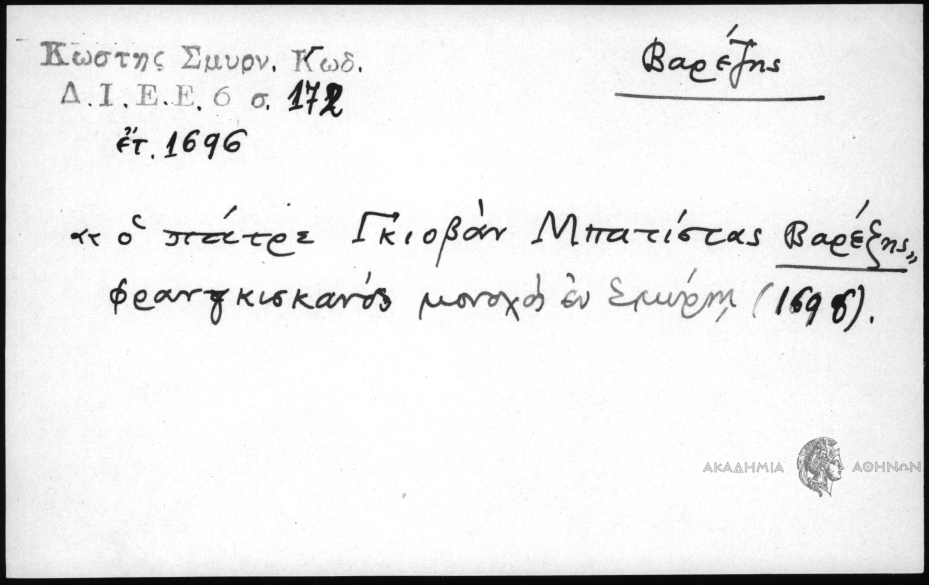 Κωστης Σμυρν. Κωδ.
Δ.Ι.Ε.Ε. 6 σ. 172
ἔτ. 1696
Βαρέζης
«ὁ πάτρε Γκιοβὰν Μπατίστας Βαρέζης»
φραντζκισκανός μοναχός ἐν Σμύρνῃ (1696).
ΑΚΑΔΗΜΙΑ ΑΘΗΝΩΝ